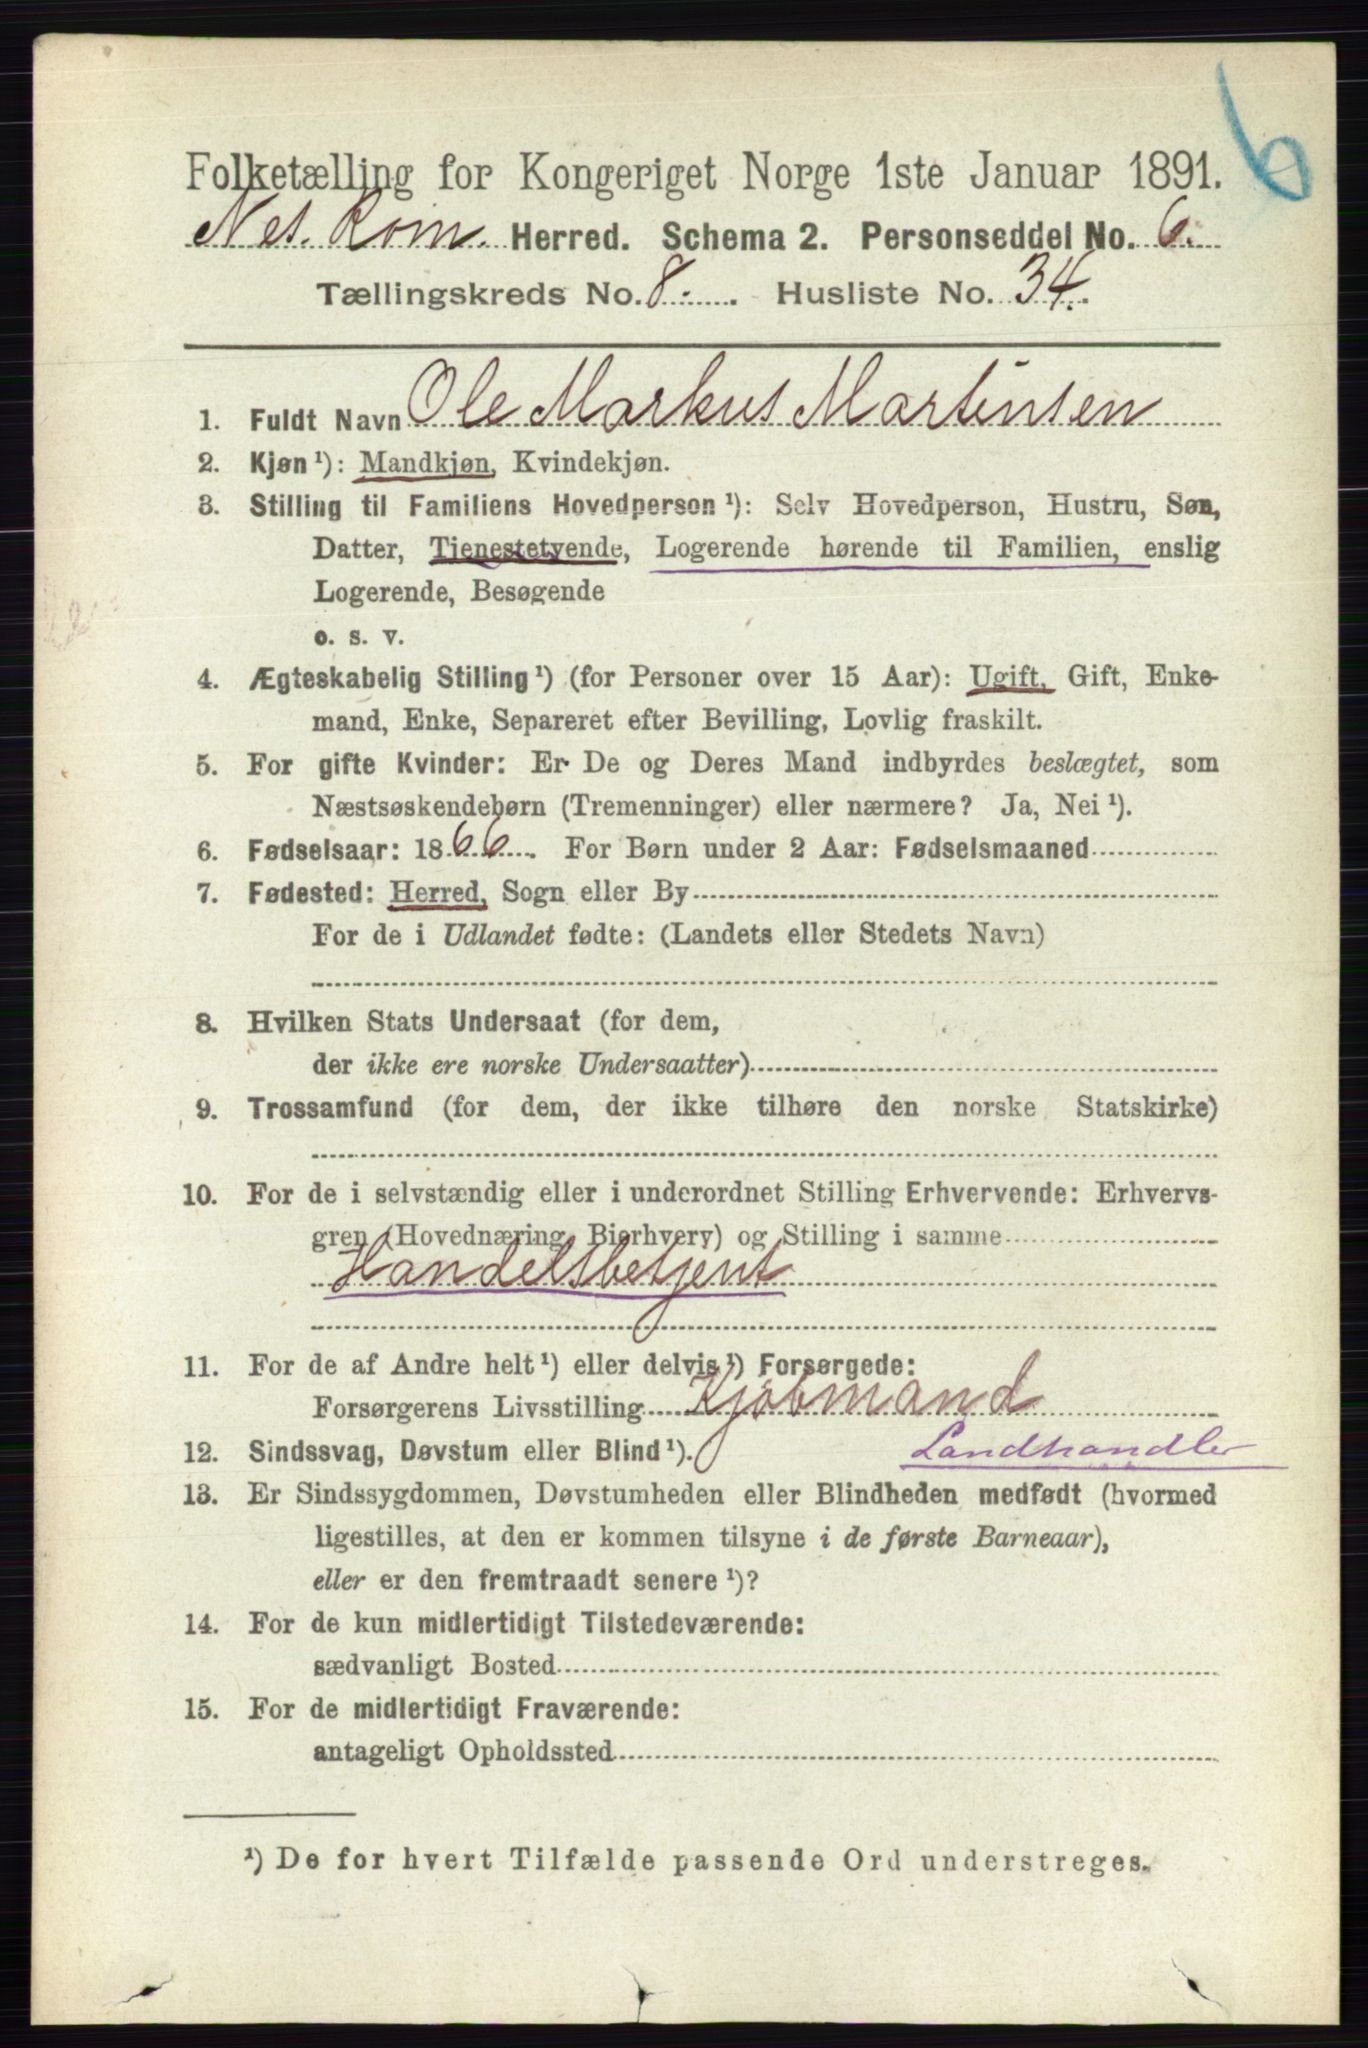 6
Folketælling for Kongeriget Norge 1ste Januar 1891.
Nes. Rom. Herred. Schema 2. Personseddel No. 6.
Tællingskreds No. 8. Husliste No. 34.
1. Fuldt Navn Ole Markus Martinsen
2. Kjøn ¹): Mandkjøn, Kvindekjøn.
3. Stilling til Familiens Hovedperson ¹): Selv Hovedperson, Hustru, Søn,
Datter, Tjenestetyende, Logerende hørende til Familien, enslig
Logerende, Besøgende
o. s. v.
4. Ægteskabelig Stilling ¹) (for Personer over 15 Aar): Ugift, Gift, Enke-
mand, Enke, Separeret efter Bevilling, Lovlig fraskilt.
5. For gifte Kvinder: Er De og Deres Mand indbyrdes beslægtet, som
Næstsøskendebørn (Tremenninger) eller nærmere? Ja, Nei ¹).
6. Fødselsaar: 1866. For Børn under 2 Aar: Fødselsmaaned
7. Fødested: Herred, Sogn eller By
For de i Udlandet fødte: (Landets eller Stedets Navn)
8. Hvilken Stats Undersaat (for dem,
der ikke ere norske Undersaatter)
9. Trossamfund (for dem, der ikke tilhøre den norske Statskirke)
10. For de i selvstændig eller i underordnet Stilling Erhvervende: Erhvervs-
gren (Hovednæring, Bierhverv) og Stilling i samme
Handelsbetjent
11. For de af Andre helt ¹) eller delvis ¹) Forsørgede:
Forsørgerens Livsstilling Kjøbmand
12. Sindssvag, Døvstum eller Blind ¹). Landhandler
13. Er Sindssygdommen, Døvstumheden eller Blindheden medfødt (hvormed
ligestilles, at den er kommen tilsyne i de første Barneaar),
eller er den fremtraadt senere ¹)?
14. For de kun midlertidigt Tilstedeværende:
sædvanligt Bosted
15. For de midlertidigt Fraværende:
antageligt Opholdssted
¹) De for hvert Tilfælde passende Ord understreges.